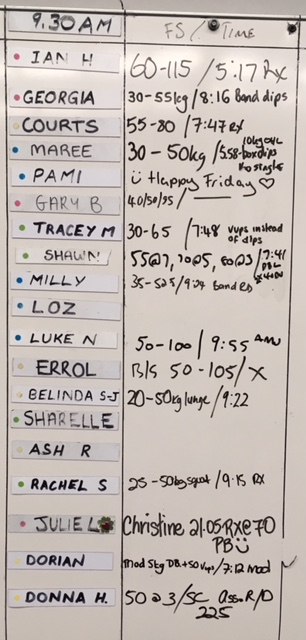 9.30AM FS / TIME
IAN H 60-115 / 5:17 Rx
GEORGIA 30-55kg / 8:16 Band dips
COURTS 55-80 / 7:47 Rx
MAREE 30-50kg / 5.58- box dips
PAMI Happy Friday ♡
GARY B 40/50/55 /
TRACEY M 30-65 / 7:48 vups instead of dips
SHAWN 55@7, 70@5, 80@3 / 7:41
MILLY 35-52.5 / 9:04 band
LOZ
LUKE N 50-100 / 9:55
ERROL B/S 50-105 / X
BELINDA S-J 20-50kg lunge / 9:22
SHARELLE
ASH R
RACHEL S 25-50kg squat / 9:15 Rx
JULIE L Christine 21:05 RX@70
PB
DORIAN mod 5kg DB + 50 Vups / 7:12 mod
DONNA H. 50 @ 3 / SC Ass. R/D
225